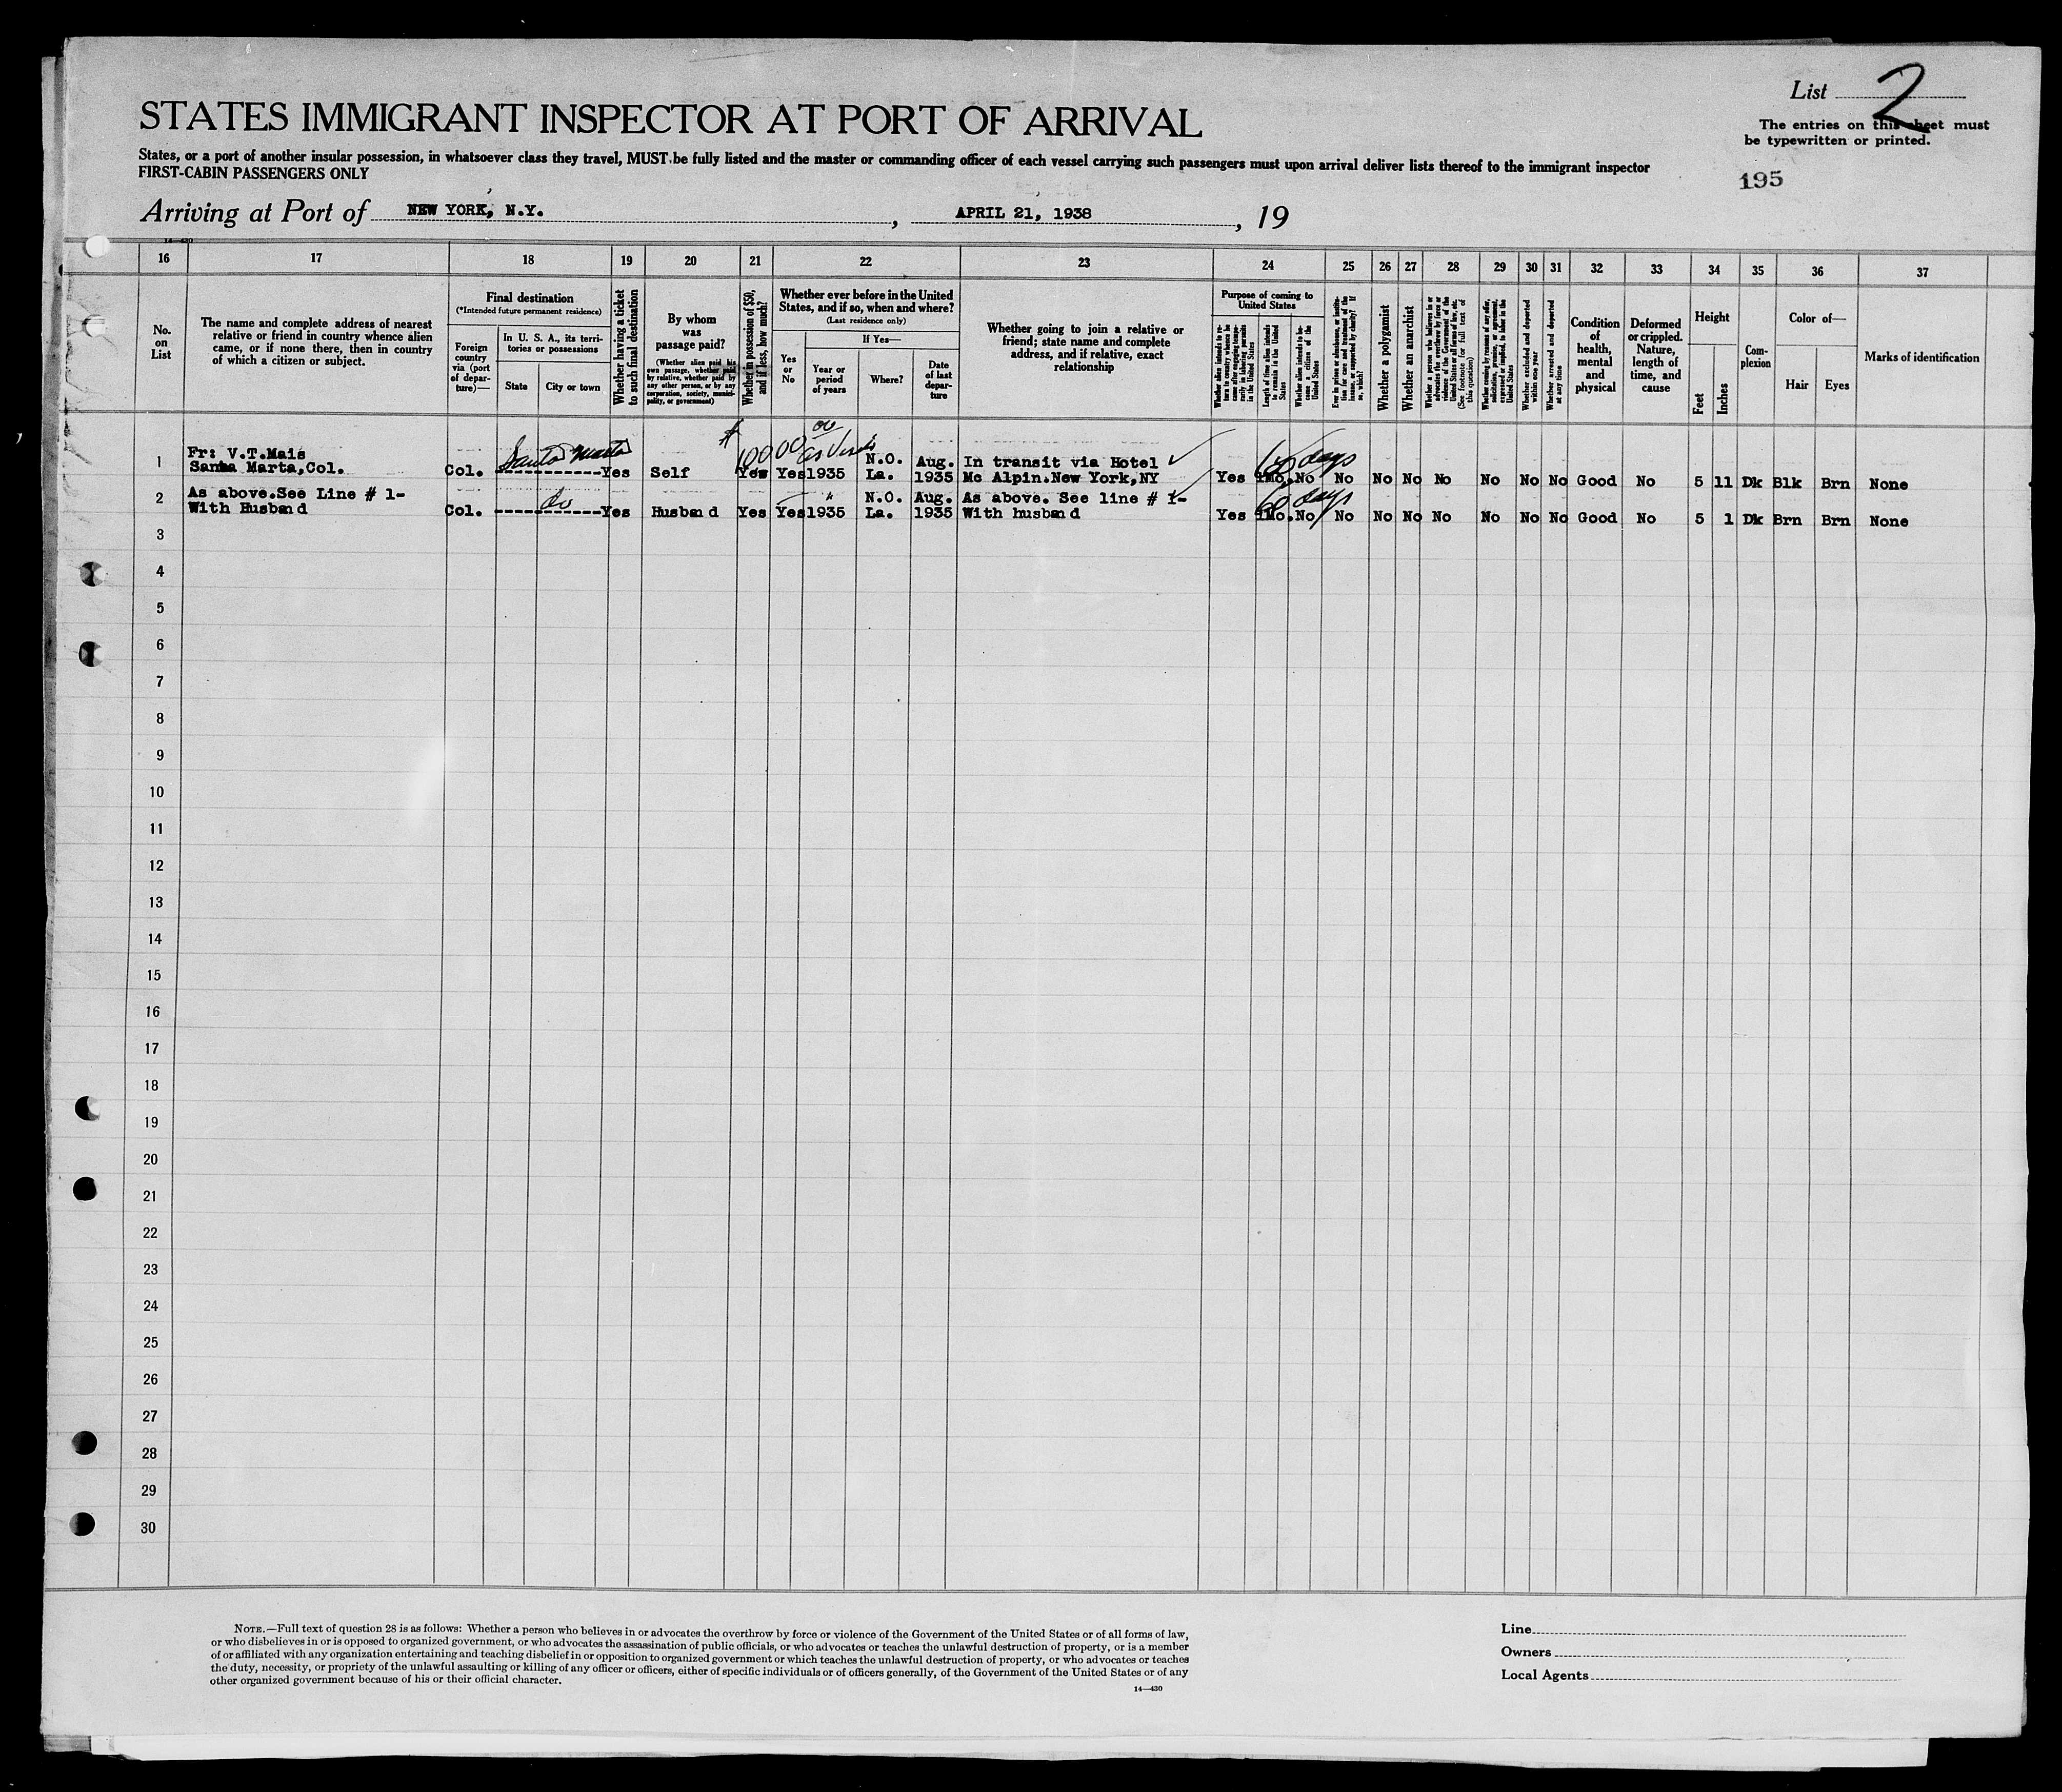 List 2
STATES IMMIGRANT INSPECTOR AT PORT OF ARRIVAL
The entries on this sheet must
be typewritten or printed.
States, or a port of another insular possession, in whatsoever class they travel, MUST be fully listed and the master or commanding officer of each vessel carrying such passengers must upon arrival deliver lists thereof to the immigrant inspector
FIRST-CABIN PASSENGERS ONLY
195
Arriving at Port of NEW YORK, N.Y. , APRIL 21, 1938 , 19
14—430
16 17 18 19 20 21 22 23 24 25 26 27 28 29 30 31 32 33 34 35 36 37
No. on List
The name and complete address of nearest relative or friend in country whence alien came, or if none there, then in country of which a citizen or subject.
Final destination
(*Intended future permanent residence)
Foreign country via (port of departure)—
In U. S. A., its territories or possessions
State
City or town
Whether having a ticket to such final destination
By whom was passage paid?
(Whether alien paid his own passage, whether paid by relative, whether paid by any other person, or by any corporation, society, municipality, or government)
Whether in possession of $50, and if less, how much?
Whether ever before in the United States, and if so, when and where?
(Last residence only)
Yes or No
If Yes—
Year or period of years
Where?
Date of last departure
Whether going to join a relative or friend; state name and complete address, and if relative, exact relationship
Purpose of coming to United States
Length of time alien intends to remain in the United States
Whether alien intends to become a citizen of the United States
Whether a polygamist
Whether an anarchist
(See footnote for full text of this question)
Whether excluded and deported within one year
Whether arrested and deported at any time
Condition of health, mental and physical
Deformed or crippled. Nature, length of time, and cause
Height
Feet
Inches
Complexion
Color of—
Hair
Eyes
Marks of identification
$ 10000 00
Santa Marta
60 days
1 Fr: V.T.Mais N.O. Aug. In transit via Hotel ✓
Santa Marta,Col. Col. ----------- Yes Self Yes Yes 1935 La. 1935 Mc Alpin.New York,NY Yes 1Mo. No No No No No No No No Good No 5 11 Dk Blk Brn None
do 60 days
2 As above.See Line # 1- " N.O. Aug. As above. See line # 1-
With Husband Col. ----------- Yes Husband Yes Yes 1935 La. 1935 With husband Yes 1Mo. No No No No No No No No Good No 5 1 Dk Brn Brn None
3
4
5
6
7
8
9
10
11
12
13
14
15
16
17
18
19
20
21
22
23
24
25
26
27
28
29
30
NOTE.—Full text of question 28 is as follows: Whether a person who believes in or advocates the overthrow by force or violence of the Government of the United States or of all forms of law,
or who disbelieves in or is opposed to organized government, or who advocates the assassination of public officials, or who advocates or teaches the unlawful destruction of property, or is a member
of or affiliated with any organization entertaining and teaching disbelief in or opposition to organized government or which teaches the unlawful destruction of property, or who advocates or teaches
the duty, necessity, or propriety of the unlawful assaulting or killing of any officer or officers, either of specific individuals or of officers generally, of the Government of the United States or of any
other organized government because of his or their official character.
14—430
Line
Owners
Local Agents